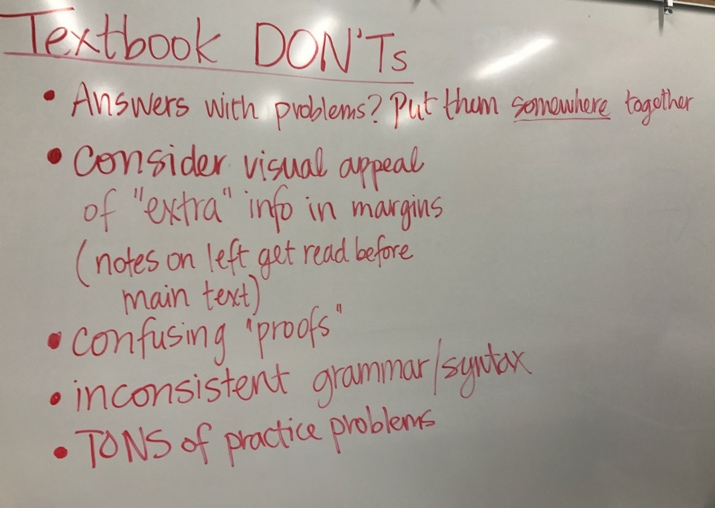 Textbook DON'Ts
• Answers with problems? Put them somewhere together
• Consider visual appeal
of "extra" info in margins
(notes on left get read before
main text)
• confusing "proofs"
• inconsistent grammar/syntax
• TONS of practice problems